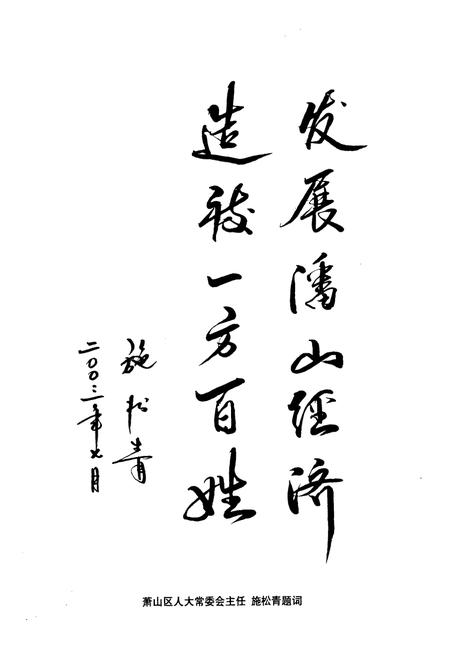 发展潘山经济
造福一方百姓
施松青
二〇〇三年七月
萧山区人大常委会主任 施松青题词